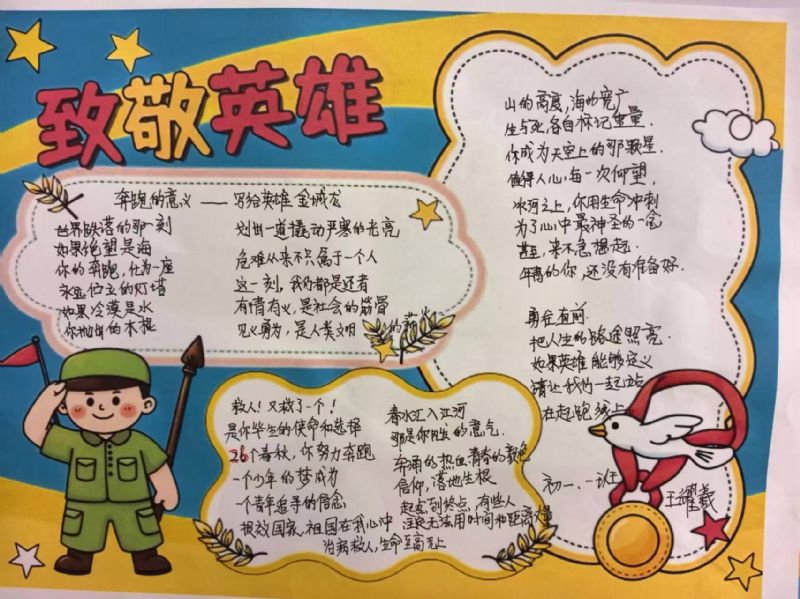 致敬英雄
奔跑的意义——写给英雄 金城龙
世界跌落的那一刻
如果绝望是海
你的奔跑，化为一座
永远伫立的灯塔
如果冷漠是水
你抛出的木棍
划出一道撬动严寒的光亮
危难从来不只属于一个人
这一刻，我们都是还者
有情有义，是社会的筋骨
见义勇为，是人类文明的薪火
救人！又救了一个！
是你毕生的使命和选择
26个春秋，你努力奔跑
一个少年的梦成为
一个青年追寻的信念
报效国家，祖国在我心中
治病救人，生命至高无上
春水汇入江河
那是你的意气
奔涌的热血，青春的颜色
信仰，落地生根
起点到终点，有些人
注定无法用时间和距离丈量
山的高度，海的宽广
生与死，各自标记重量
你成为天空上的那颗星
值得人心，每一次仰望
冰河之上，你用生命冲刺
为了心中最神圣的一念
甚至，来不急想起
年青的你，还没有准备好
勇往直前
把人生的路途照亮
如果英雄能够定义
请让我们一起站
在起跑线上
初一.一班
王耀羲